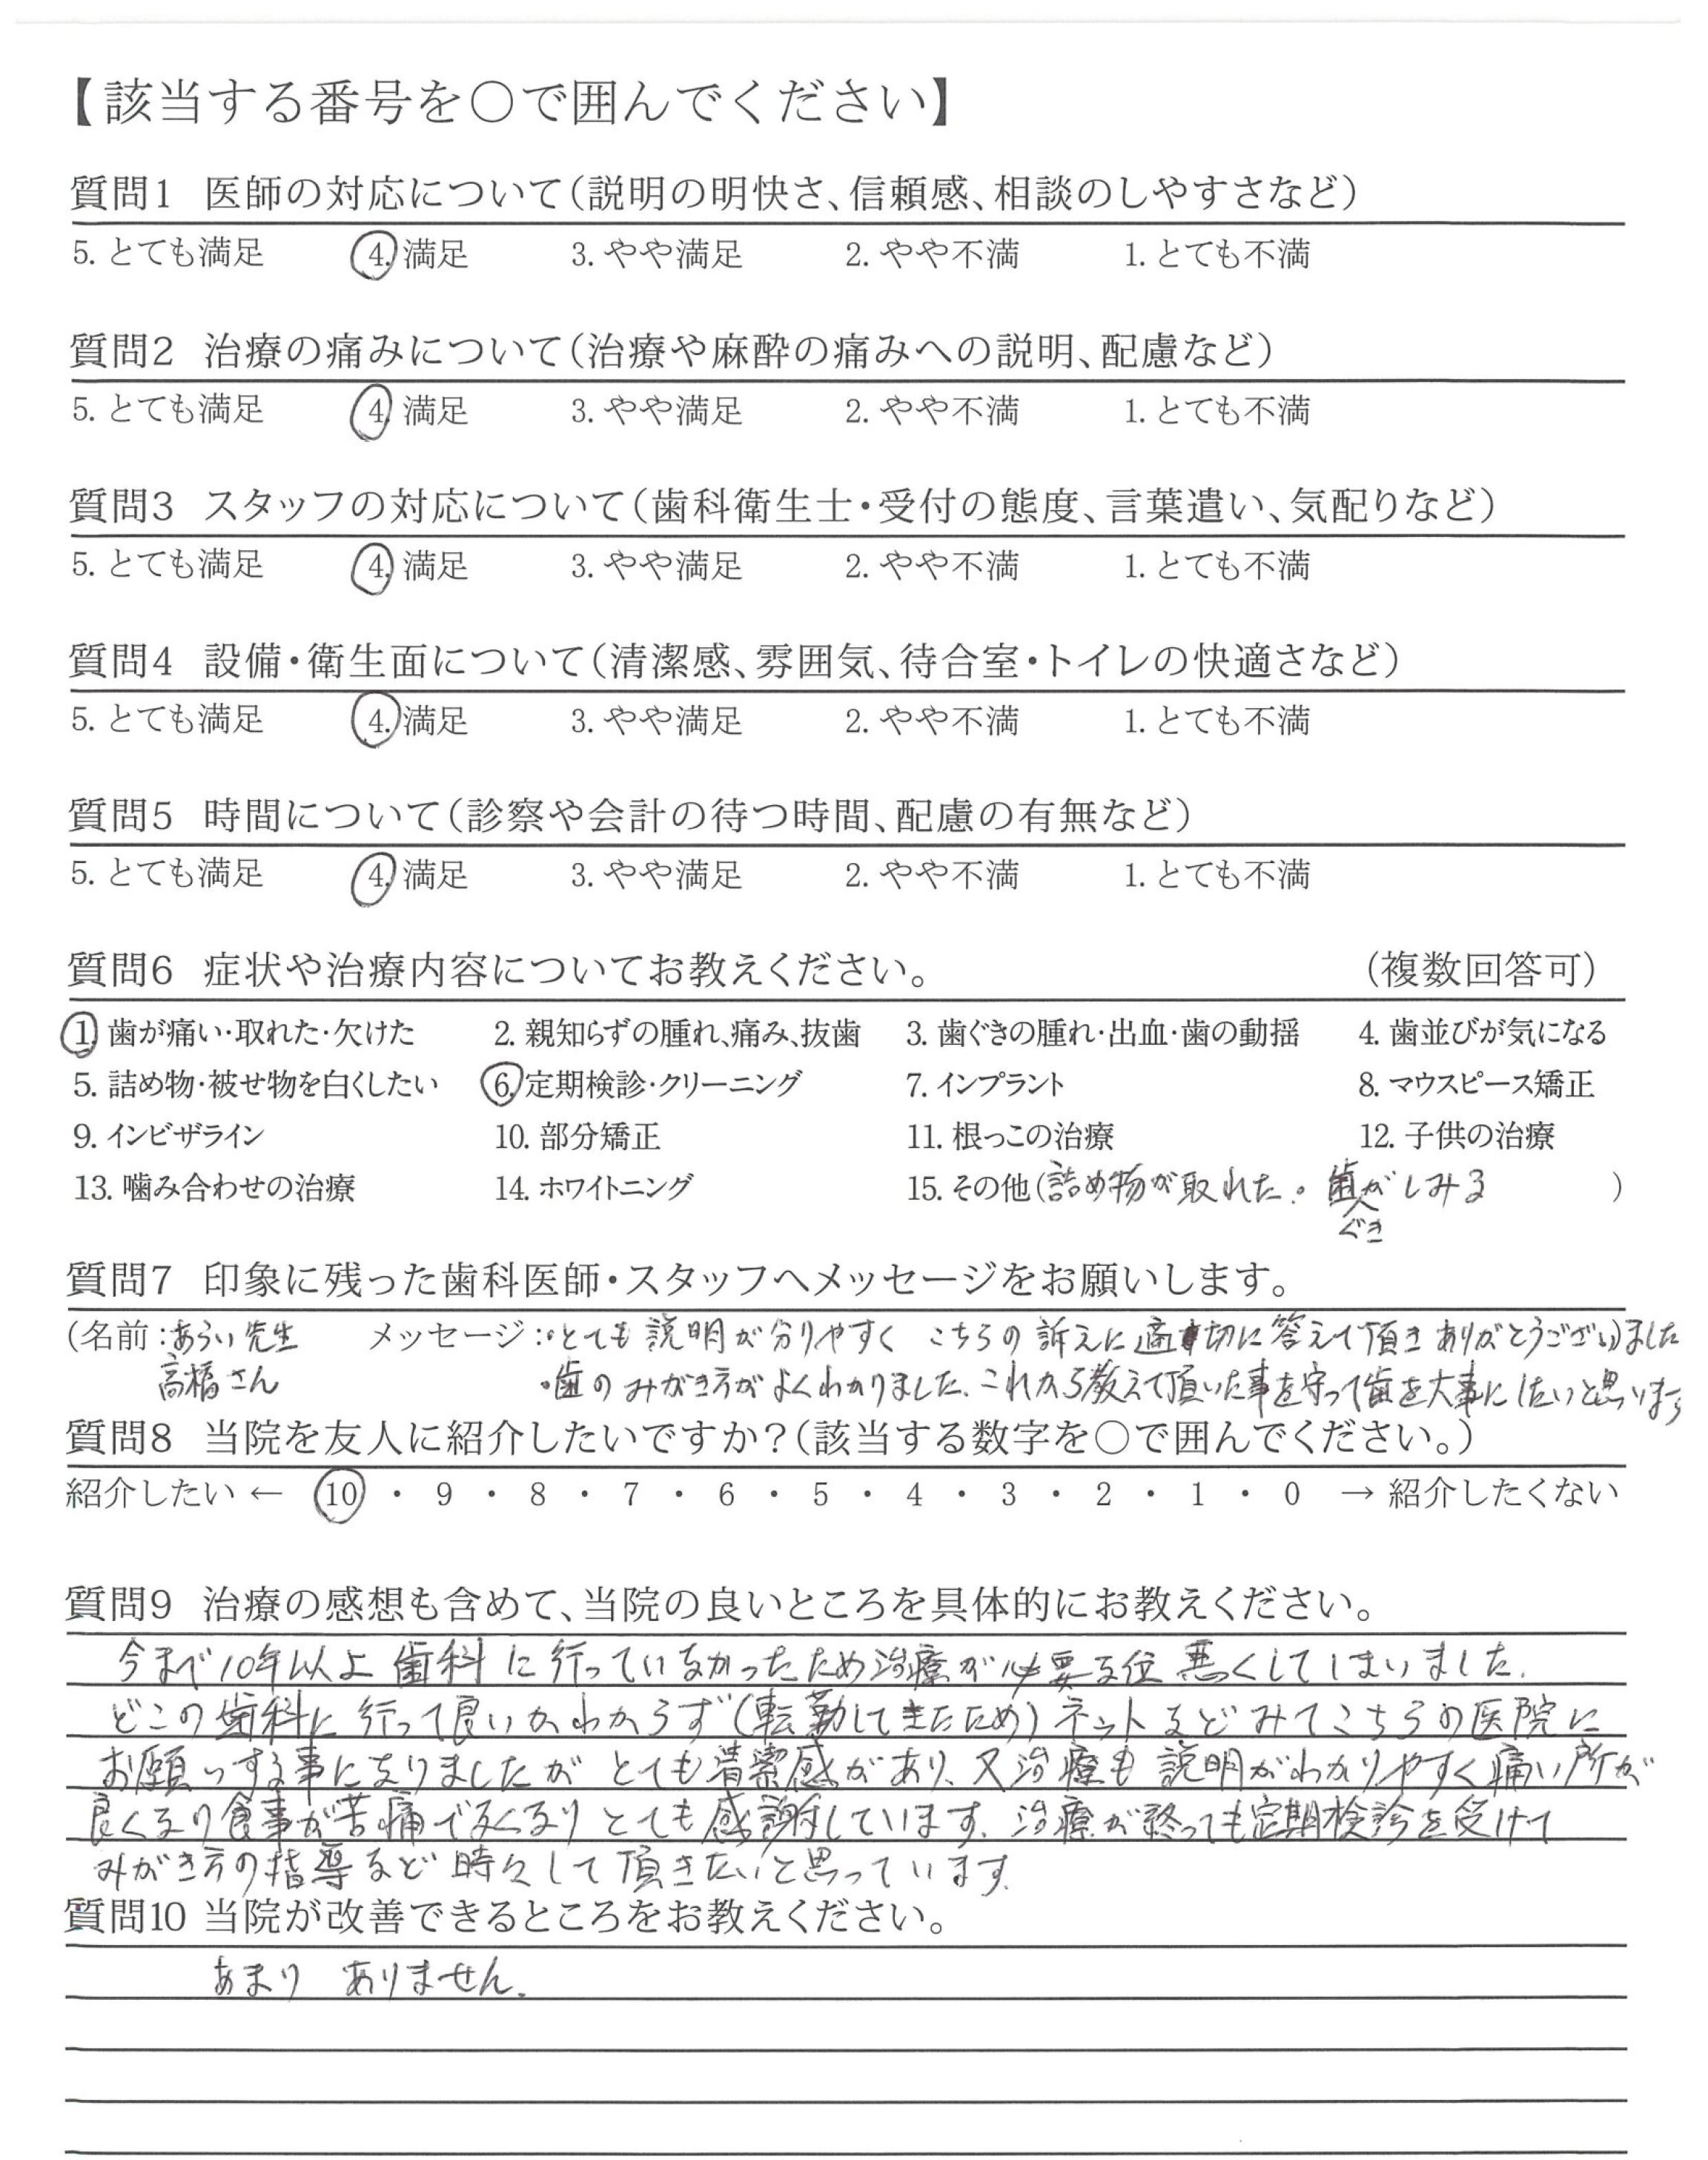 【該当する番号を○で囲んでください】
質問1 医師の対応について(説明の明快さ、信頼感、相談のしやすさなど)
5. とても満足 4. 満足 3. やや満足 2. やや不満 1. とても不満
質問2 治療の痛みについて(治療や麻酔の痛みへの説明、配慮など)
5. とても満足 4. 満足 3. やや満足 2. やや不満 1. とても不満
質問3 スタッフの対応について(歯科衛生士・受付の態度、言葉遣い、気配りなど)
5. とても満足 4. 満足 3. やや満足 2. やや不満 1. とても不満
質問4 設備・衛生面について(清潔感、雰囲気、待合室・トイレの快適さなど)
5. とても満足 4. 満足 3. やや満足 2. やや不満 1. とても不満
質問5 時間について(診察や会計の待つ時間、配慮の有無など)
5. とても満足 4. 満足 3. やや満足 2. やや不満 1. とても不満
質問6 症状や治療内容についてお教えください。 (複数回答可)
1. 歯が痛い・取れた・欠けた 2. 親知らずの腫れ、痛み、抜歯 3. 歯ぐきの腫れ・出血・歯の動揺 4. 歯並びが気になる
5. 詰め物・被せ物を白くしたい 6. 定期検診・クリーニング 7. インプラント 8. マウスピース矯正
9. インビザライン 10. 部分矯正 11. 根っこの治療 12. 子供の治療
13. 噛み合わせの治療 14. ホワイトニング 15. その他(詰め物が取れた。歯がしみる )
ぐき
質問7 印象に残った歯科医師・スタッフへメッセージをお願いします。
(名前:あらい先生 メッセージ:・とても説明が分りやすく こちらの訴えに適切に答えて頂きありがとうございました
高橋さん ・歯のみがき方がよくわかりました。これから教えて頂いた事を守って歯を大事にしたいと思います
質問8 当院を友人に紹介したいですか?(該当する数字を○で囲んでください。)
紹介したい ← 10 ・ 9 ・ 8 ・ 7 ・ 6 ・ 5 ・ 4 ・ 3 ・ 2 ・ 1 ・ 0 → 紹介したくない
質問9 治療の感想も含めて、当院の良いところを具体的にお教えください。
今まで10年以上歯科に行っていなかったため治療が必要な位悪くしてしまいました。
どこの歯科に行って良いかわからず(転勤してきたため)ネットなどみてこちらの医院に
お願いする事になりましたが とても清潔感があり、又治療も説明がわかりやすく痛い所が
良くなり食事が苦痛でなくなりとても感謝しています。治療が終っても定期検診を受けて
みがき方の指導など時々して頂きたいと思っています。
質問10 当院が改善できるところをお教えください。
あまり ありません。